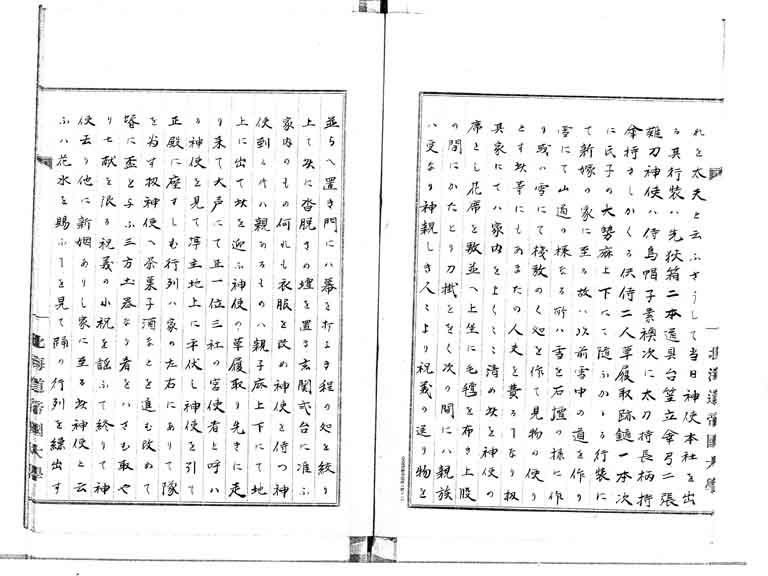 れを太夫と云ふさうして当日神使本社を出
る其行装ハ先狭箱二本道具台笠立傘弓二張
薙刀神使ハ侍烏帽子素襖次に太刀持長柄持
傘持かしかくる供侍二人草履取跡鎗一本次
に氏子の大勢麻上下にて随ふかゝる行装に
て新嫁の家に至る故ハ以前雪中の道を作り
雪にて山道の様なる所ハ雪を石壇の様に作
り或ハ雪にて桟敷のく処を作て見物の便り
とす此等にもあまたの人夫を費るゝなり扨
其家にてハ家内をよくゝ清め此を神使の
席とし花席を敷並へ上坐に毛氈を布き上段
の間にかたとり刀掛とをく次の間にハ親族
ハ更なり神親しき人々より祝義の送り物を
並らへ置き門にハ幕を打よき程の処を絞り
上て次に沓脱きの壇を置き玄関式台に准ふ
家内のもの何れも衣服を改め神使を侍つ神
使到るハ親あるものハ親子麻上下にて地
上に出て此を迎ふ神使の草履取り先きに走
り来て大声にて正一位三社の宮使者と呼ハ
る神使を見て亭主地上に平伏し神使を引て
正殿に座すしむ行列ハ家の左右にありて隊
を為す扨神使へ茶菓子酒なとを進む改めて
婿に盃を与ふ三方土器なり者をハさむ取や
り七献を限る祝義の小祝を謡ふて終りて神
使云り他に新婚ありし家に至る此神使と云
ふハ花水を賜ふてを見て踊の行列を繰出す
北海道帝国大学
北海道帝国大学